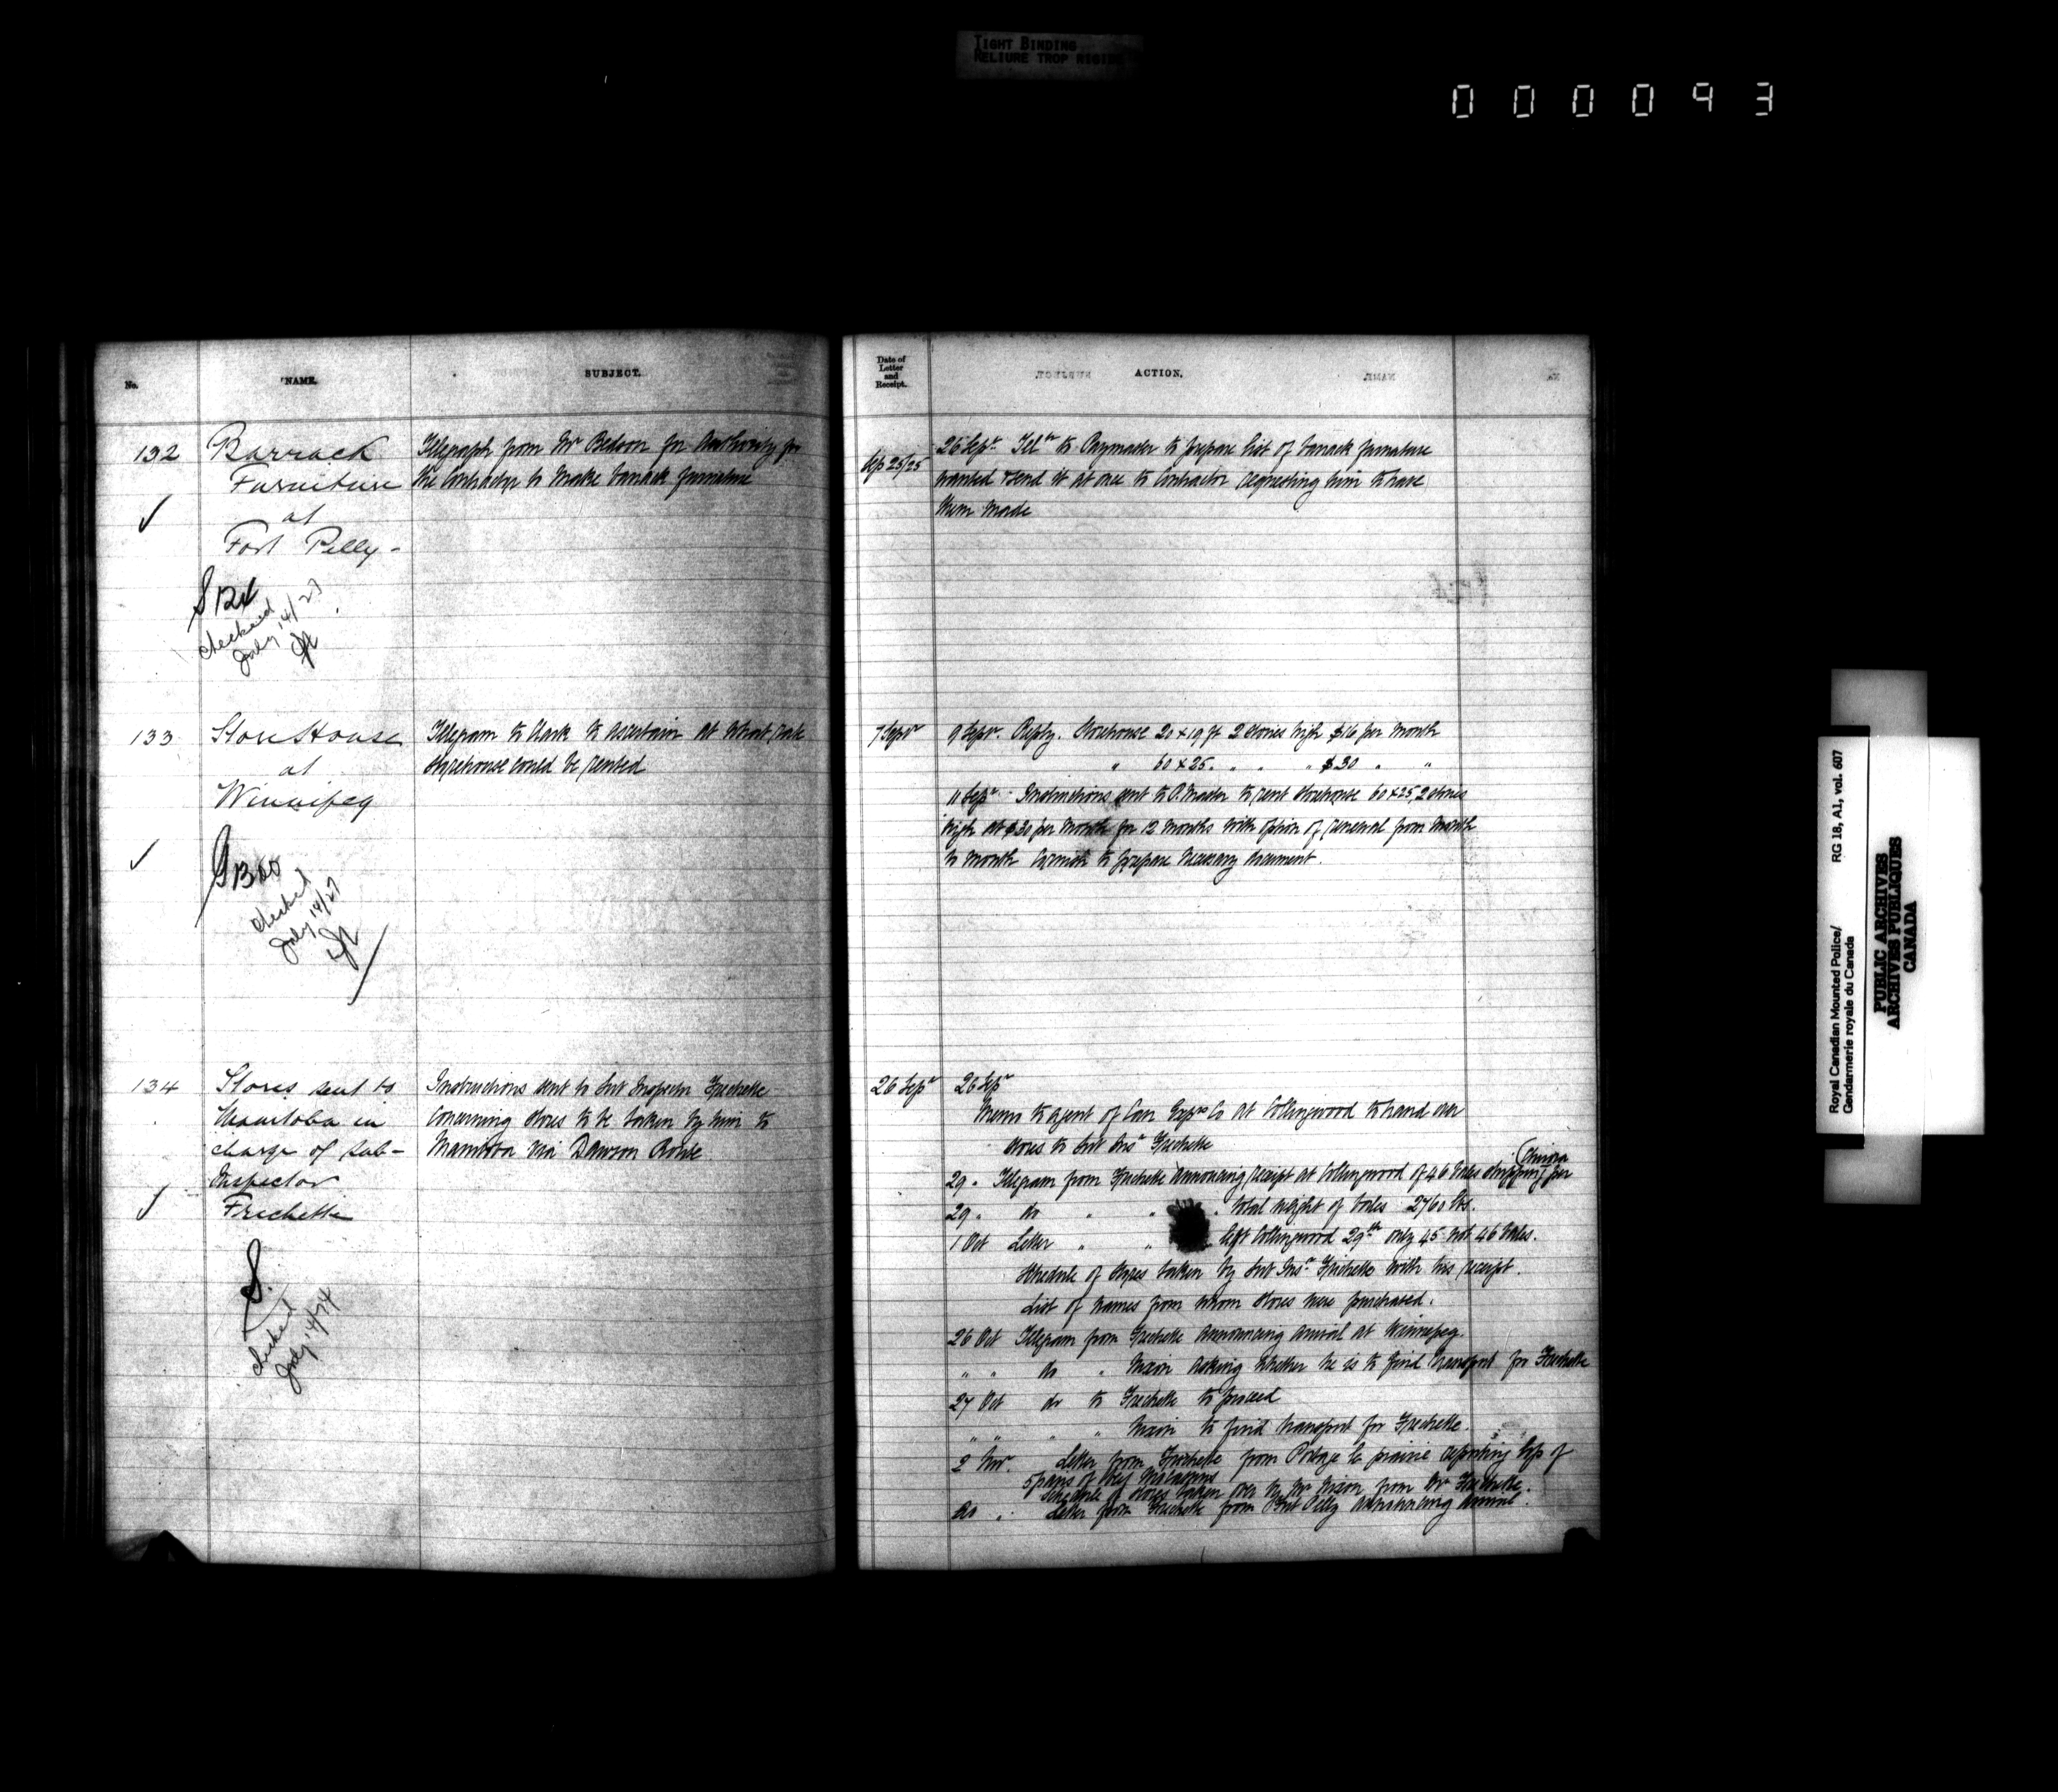 TIGHT BINDING
RELIURE TROP RIGIDE
000093
No.
NAME.
SUBJECT.
Date of
Letter
and
Receipt.
ACTION.
132
Barrack
Furniture
at
Fort Pelly -
Telegraph from Mr Bedson for Authority for
the Contractor to make barrack furniture
Sep 25/25
26 Sepr. Telm to Paymaster to prepare list of barrack furniture
wanted & send it at once to Contractor requesting him to have
them made
checked
July 14/27
133
Store House
at
Winnipeg
Telegram to Clark to ascertain at what rate
storehouse could be rented
7 Sepr
9 Sepr. Reply. Storehouse 20 x 19 ft 2 stories high $16 per month
" 60 x 25. " " " $30 " "
11 Sepr - Instructions sent to P. Master to rent storehouse 60 x 25, 2 stories
high at $30 per month for 12 months with option of renewal from month
to month to prepare necessary document.
G 1300
checked
July 14/27
134
Stores sent to
Manitoba in
charge of Sub-
Inspector
Frechette
Instructions sent to Sub Inspector Frechette
concerning stores to be taken by him to
Manitoba via Dawson Route
26 Sepr
26 Sepr
Memo to agent of Can Exps Co at Collingwood to hand over
stores to Sub Insr Frechette
29 " Telegram from Frechette announcing receipt at Collingwood of 46 bales shipping per
Chicora
29 " do " " " total weight of bales 2760 lbs.
1 Oct Letter " " left Collingwood 29th only 45 not 46 bales.
Schedule of stores taken by Sub Insr Frechette with his receipt.
List of names from whom stores were purchased.
26 Oct Telegram from Frechette announcing arrival at Winnipeg.
" " do " Nixon asking whether he is to find transport for Frechette
27 Oct do to Frechette to proceed
" " " " Nixon to find transport for Frechette.
2 Nov. Letter from Frechette from Portage la prairie reporting loss of
5 pairs of
Schedule of stores taken over by Mr Nixon from Mr Frechette.
" Letter from Frechette from Fort Pelly announcing arrival.
S.
checked
July 14/74
Royal Canadian Mounted Police/
Gendarmerie royale du Canada
RG 18, A1, vol. 607
PUBLIC ARCHIVES
ARCHIVES PUBLIQUES
CANADA